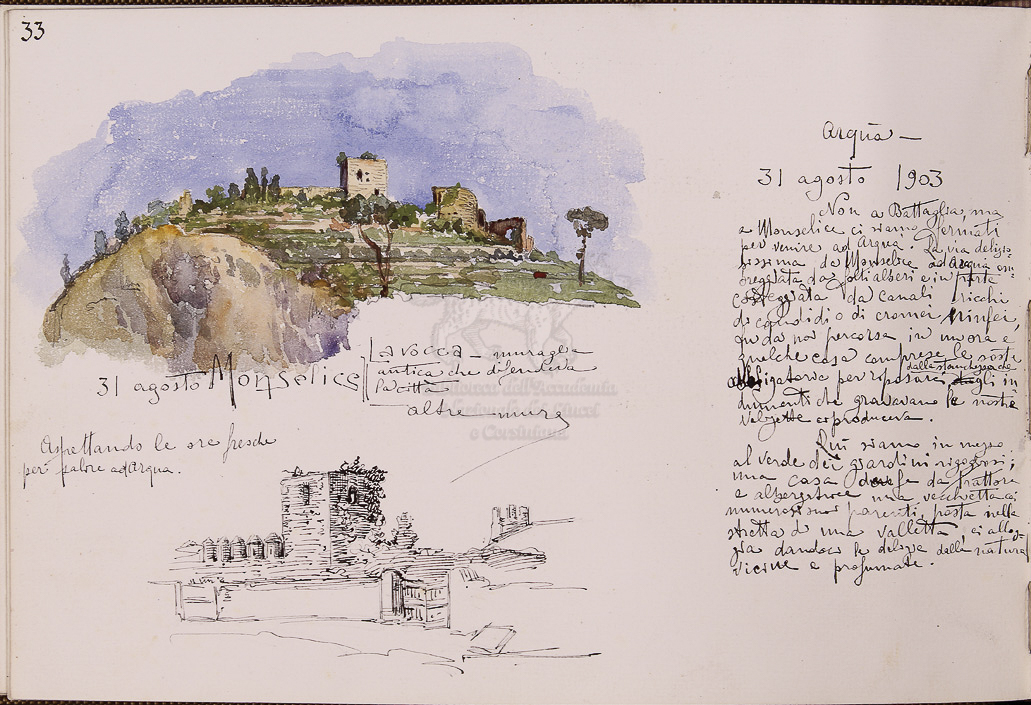 33
31 agosto Monselice
La rocca - muraglia
antica che difendeva
la città
altre mura
Aspettando le ore fresche
per salire ad Arquà.
Arquà -
31 agosto 1903
Non a Battaglia, ma
a Monselice ci siamo fermati
per venire ad Arquà. La via delizio
sissima da Monselice ad Arquà om
breggiata da folti alberi e in parte
costeggiata da canali ricchi
di
da noi percorsa in un'ora e
qualche cosa comprese le soste
obbligatorie per riposarci dalla stanchezza che
dumenti che gravavano le nostre
valigette ci produceva.
Qui siamo in mezzo
al verde dei giardini rigogliosi;
una casa da trattore
e albergatore una vecchietta coi
numerosi suoi parenti, posta nella
stretta di una valletta, ci allog
gia dandoci le delizie della natura
vicine e profumate.